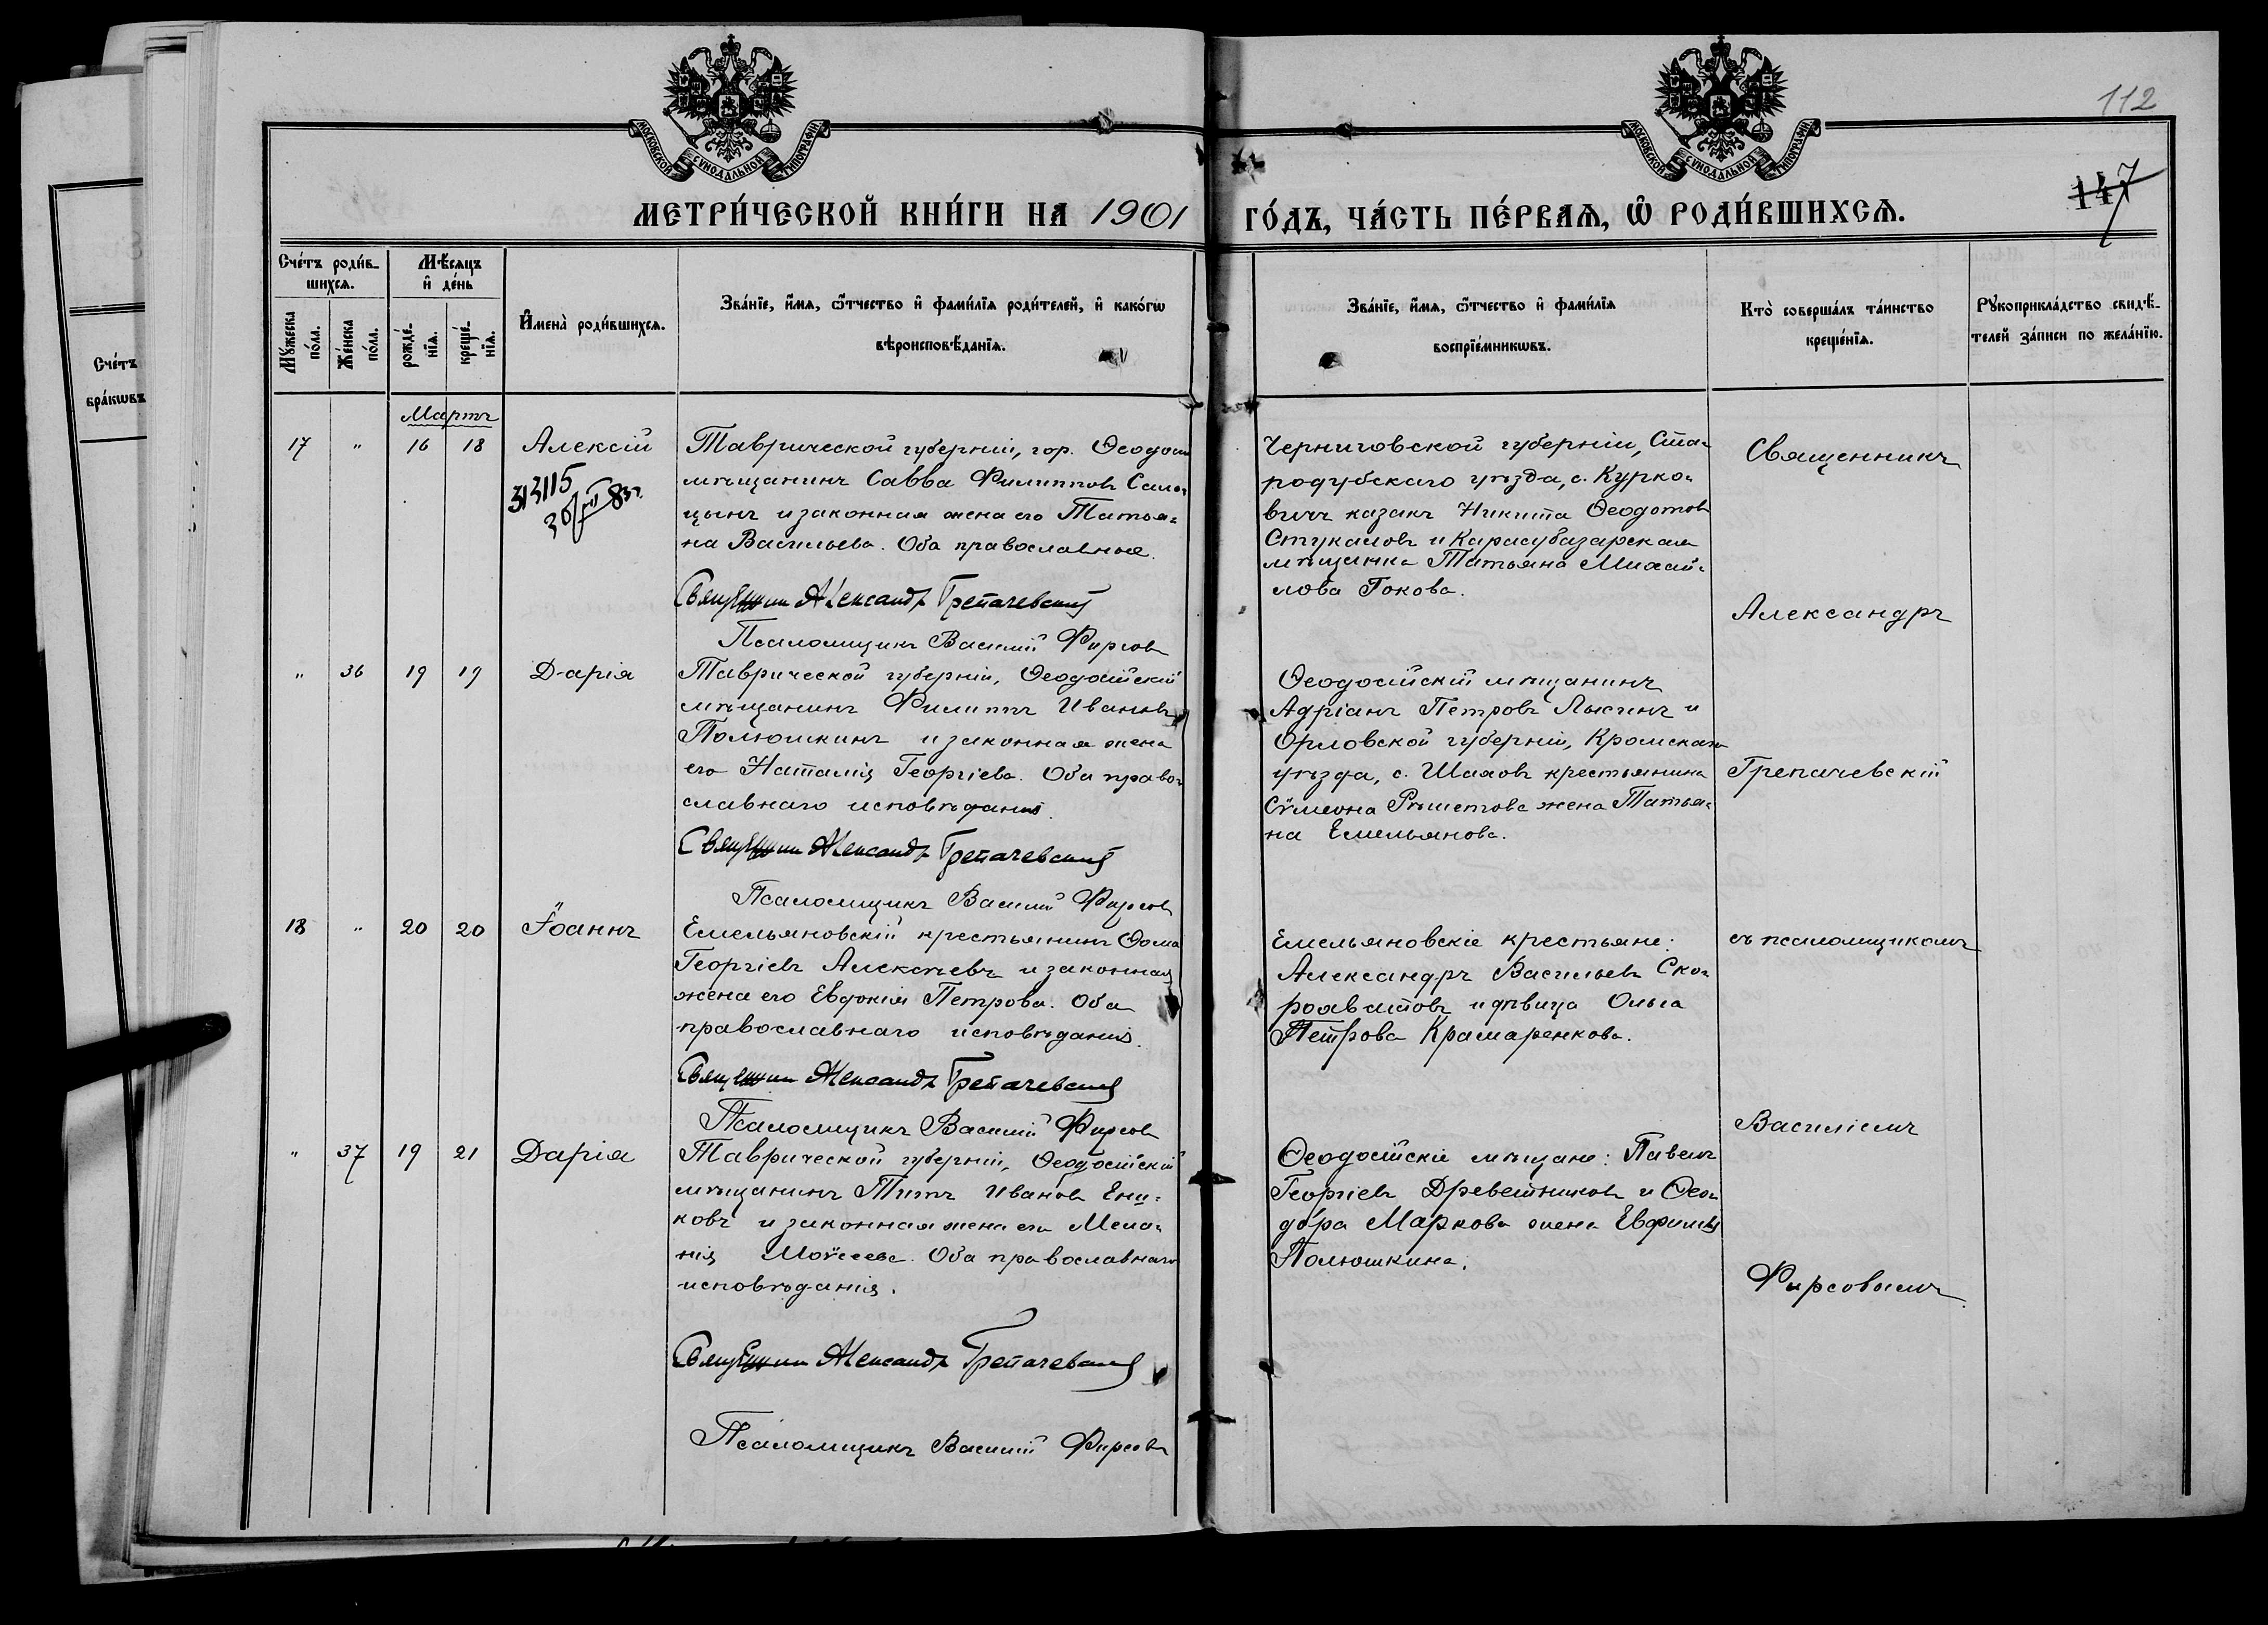 112
147
МОСКОВСКОЙ СУНОДАЛЬНОЙ ТИПОГРАФІИ
МОСКОВСКОЙ СУНОДАЛЬНОЙ ТИПОГРАФІИ
МЕТРИ́ЧЕСКОЙ КНИ́ГИ НА 1901 ГО́ДЪ, ЧА́СТЬ ПЕ́РВАЯ, Ѡ РОДИ́ВШИХСЯ.
Сче́тъ роди́в-
шихся.
Мѣ́сяцъ
и де́нь
Мꙋ́жеска
по́ла.
Же́нска
по́ла.
рожде́-
нїя.
креще́-
нїя.
Имена̀ роди́вшихся.
Зва́нїе, и́мя, ѻ҆́тчество и фами́лїя роди́телей, и како́гѡ
вѣроисповѣ́данїя.
Зва́нїе, и́мя, ѻ҆́тчество и фами́лїя
воспрїе́мникѡвъ.
Кто̀ соверша́лъ та́инство
креще́нїя.
Рꙋкоприкла́дство свидѣ́-
телей за́писи по жела́нїю.
Сче́тъ
бра́кѡвъ
Мартъ
17 " 16 18 Алексій
313115
Таврической губерніи, гор. Ѳеодосіи
мѣщанинъ Савва Филипповъ
и законная жена его Татья-
на Васильева. Оба православные.
Священникъ Александръ Грепачевскій
Псаломщикъ Василій Фирсовъ
Черниговской губерніи, Ста-
родубскаго уѣзда, с. Курко-
вичъ казакъ Никита Ѳеодотовъ
Стукаловъ и Карасубазарская
мѣщанка Татьяна Михай-
лова Гокова.
Священникъ
Александръ
Грепачевскій
съ псаломщикомъ
Василіемъ
Фирсовымъ.
" 36 19 19 Дарія
Таврической губерніи, Ѳеодосійскій
мѣщанинъ Филиппъ Ивановъ
Полюшкинъ и законная жена
его Наталія Георгіева. Оба право-
славнаго исповѣданія.
Священникъ Александръ Грепачевскій
Псаломщикъ Василій Фирсовъ
Ѳеодосійскій мѣщанинъ
Адріанъ Петровъ Лысинъ и
Орловской губерніи, Кромскаго
уѣзда, с. Шахова крестьянина
Сѵмеона Рѣшетова жена Татья-
на Емельянова.
18 " 20 20 Іоаннъ
Емельяновскій крестьянинъ Ѳома
Георгіевъ Алексѣевъ и законная
жена его Евдокія Петрова. Оба
православнаго исповѣданія.
Священникъ Александръ Грепачевскій
Псаломщикъ Василій Фирсовъ
Емельяновскіе крестьяне:
Александръ Васильевъ Ско-
роявитовъ и дѣвица Ольга
Петрова Крамаренкова.
" 37 19 21 Дарія
Таврической губерніи, Ѳеодосійскій
мѣщанинъ Титъ Ивановъ Ени-
ковъ и законная жена его Мела-
нія Моѵсеева. Оба православнаго
исповѣданія.
Священникъ Александръ Грепачевскій
Псаломщикъ Василій Фирсовъ
Ѳеодосійскіе мѣщане: Павелъ
Георгіевъ Древетняковъ и Ѳео-
дора Маркова жена Евфимія
Полюшкина.